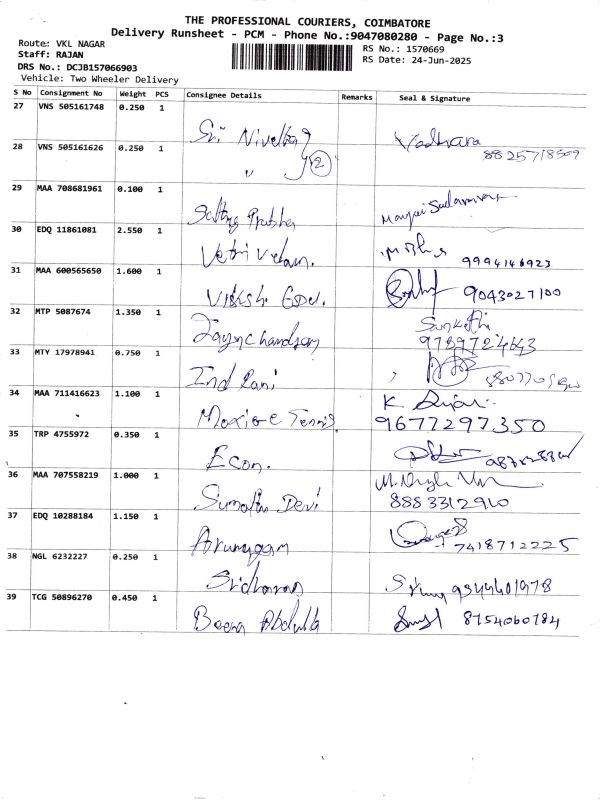 THE PROFESSIONAL COURIERS, COIMBATORE
Delivery Runsheet - PCM - Phone No.:9047080280 - Page No.:3
Route: VKL NAGAR
Staff: RAJAN
RS No.: 1570669
DRS No.: DCJB157066903
RS Date: 24-Jun-2025
Vehicle: Two Wheeler Delivery
S No Consignment No Weight PCS Consignee Details Remarks Seal & Signature
27 VNS 505161748 0.250 1 Sri
28 VNS 505161626 0.250 1 " 2
29 MAA 708681961 0.100 1 Prabha
30 EDQ 11861081 2.550 1 Vetri Velan. 9994146923
31 MAA 600565650 1.600 1 9043027100
32 MTP 5087674 1.350 1
33 MTY 17978941 0.750 1 Ind Rani
34 MAA 711416623 1.100 1 Tennis. K 9677297350
35 TRP 4755972 0.350 1 Econ.
36 MAA 707558219 1.000 1 Sumathi Devi 8883312910
37 EDQ 10288184 1.150 1 Arumugam 7418712225
38 NGL 6232227 0.250 1 Sridharan
39 TCG 50896270 0.450 1 Beena Abdulla 8754060784